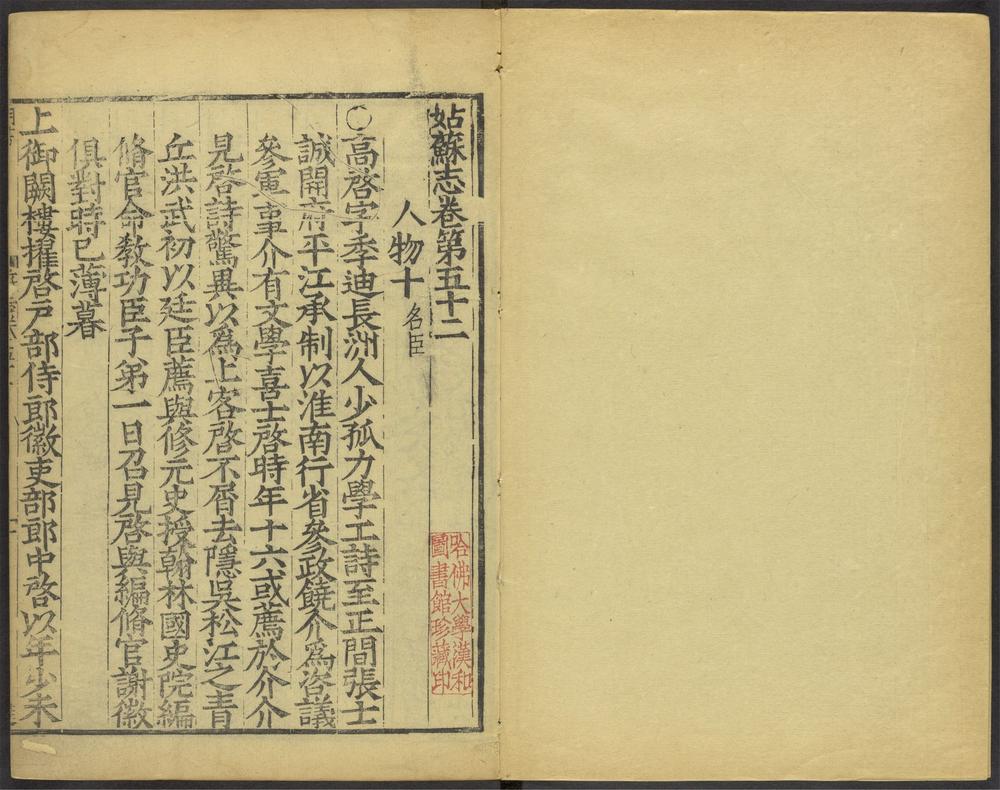 姑蘇志卷第五十二
人物十 名臣
○高啓字季迪長洲人少孤力學工詩至正間張士
誠開府平江承制以淮南行省參政饒介爲咨議
參軍事介有文學喜士啓時年十六或薦於介介
見啓詩驚異以爲上客啓不屑去隱吳松江之青
丘洪武初以廷臣薦與修元史授翰林國史院編
脩官命敎功臣子弟一日召見啓與編脩官謝徽
俱對時已薄暮
上御闕樓擢啓戸部侍郎徽吏部郎中啓以年少未
哈佛大學漢和
圖書館珍藏印